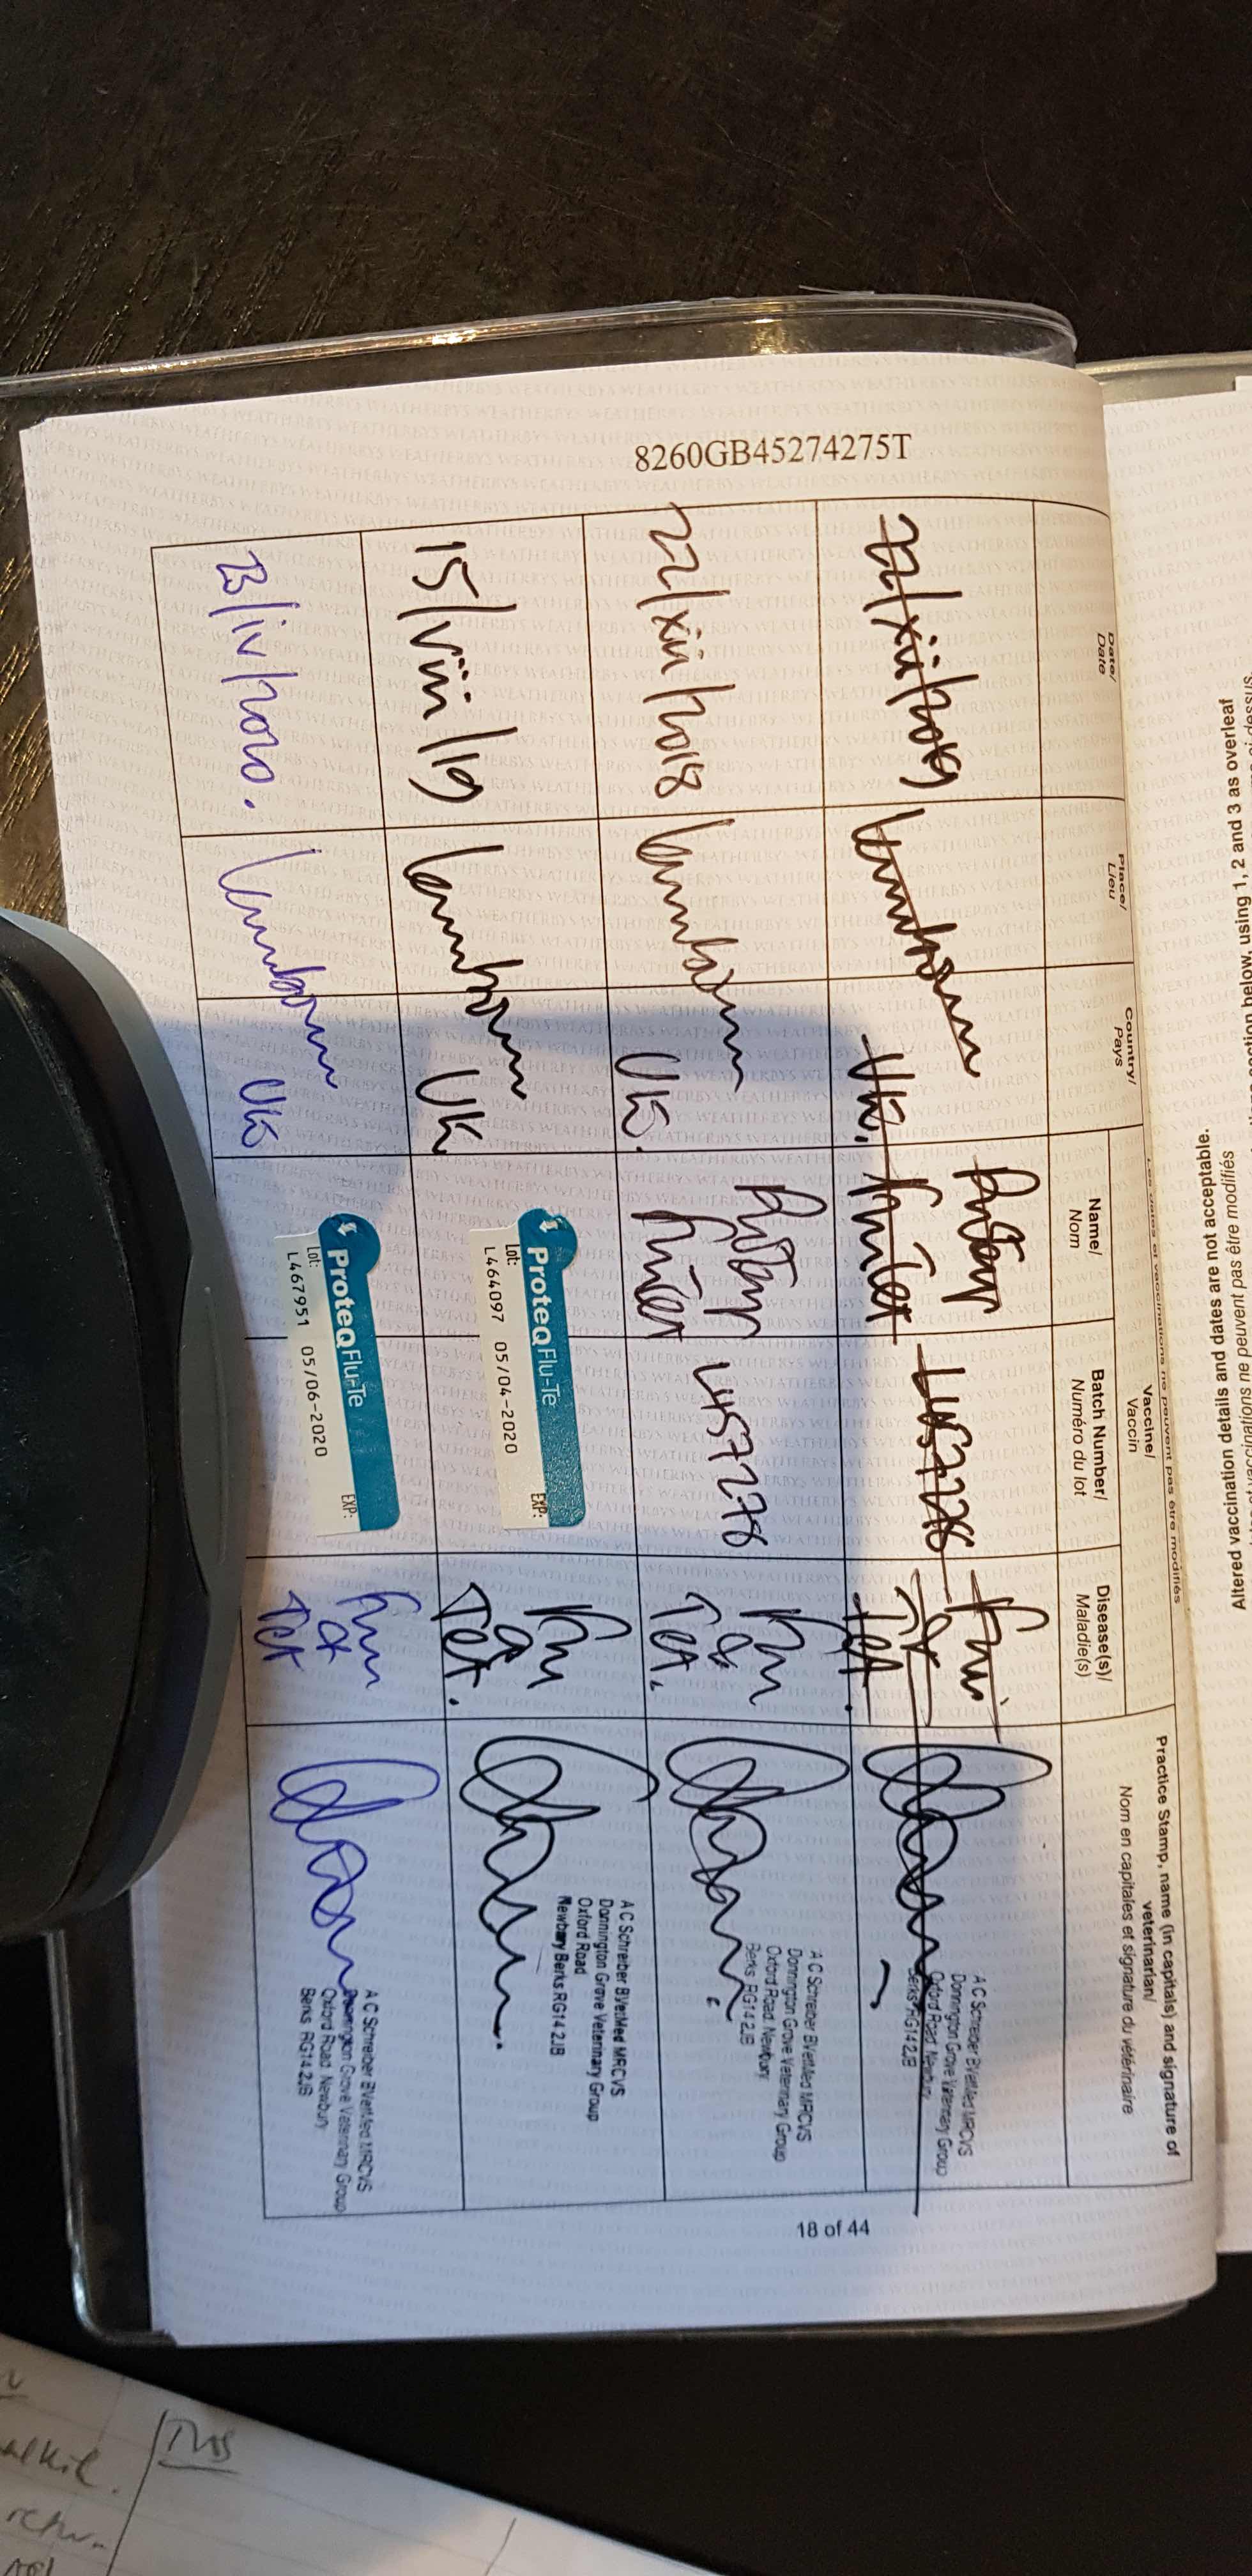 Altered vaccination details and dates are not acceptable.
vaccinations ne peuvent pas être modifiés
section below, using 1, 2 and 3 as overleaf
8260GB45274275T
Les dates et vaccinations ne peuvent pas être modifiés
Date/
Date
Place/
Lieu
Country/
Pays
Vaccine/
Vaccin
Name/
Nom
Batch Number/
Numéro du lot
Disease(s)/
Maladie(s)
Practice Stamp, name (in capitals) and signature of
veterinarian/
Nom en capitales et signature du vétérinaire
Lambourn
UK.
L457278
Flu
&
Tet.
A C Schreiber BVetMed MRCVS
Donnington Grove Veterinary Group
Oxford Road, Newbury
Berks RG14 2JB
22/xii/2018
Lambourn
UK.
L457278
Flu
&
Tet.
A C Schreiber BVetMed MRCVS
Donnington Grove Veterinary Group
Oxford Road, Newbury
Berks RG14 2JB
15/viii/19
Lambourn
UK
ProteqFlu-Te
Lot: EXP:
L464097 05/04-2020
Flu
&
Tet.
A C Schreiber BVetMed MRCVS
Donnington Grove Veterinary Group
Oxford Road
Newbury Berks RG14 2JB
Lambourn
UK
ProteqFlu-Te
Lot: EXP:
L467951 05/06-2020
Flu
&
Tet
A C Schreiber BVetMed MRCVS
Donnington Grove Veterinary Group
Oxford Road, Newbury
Berks RG14 2JB
18 of 44